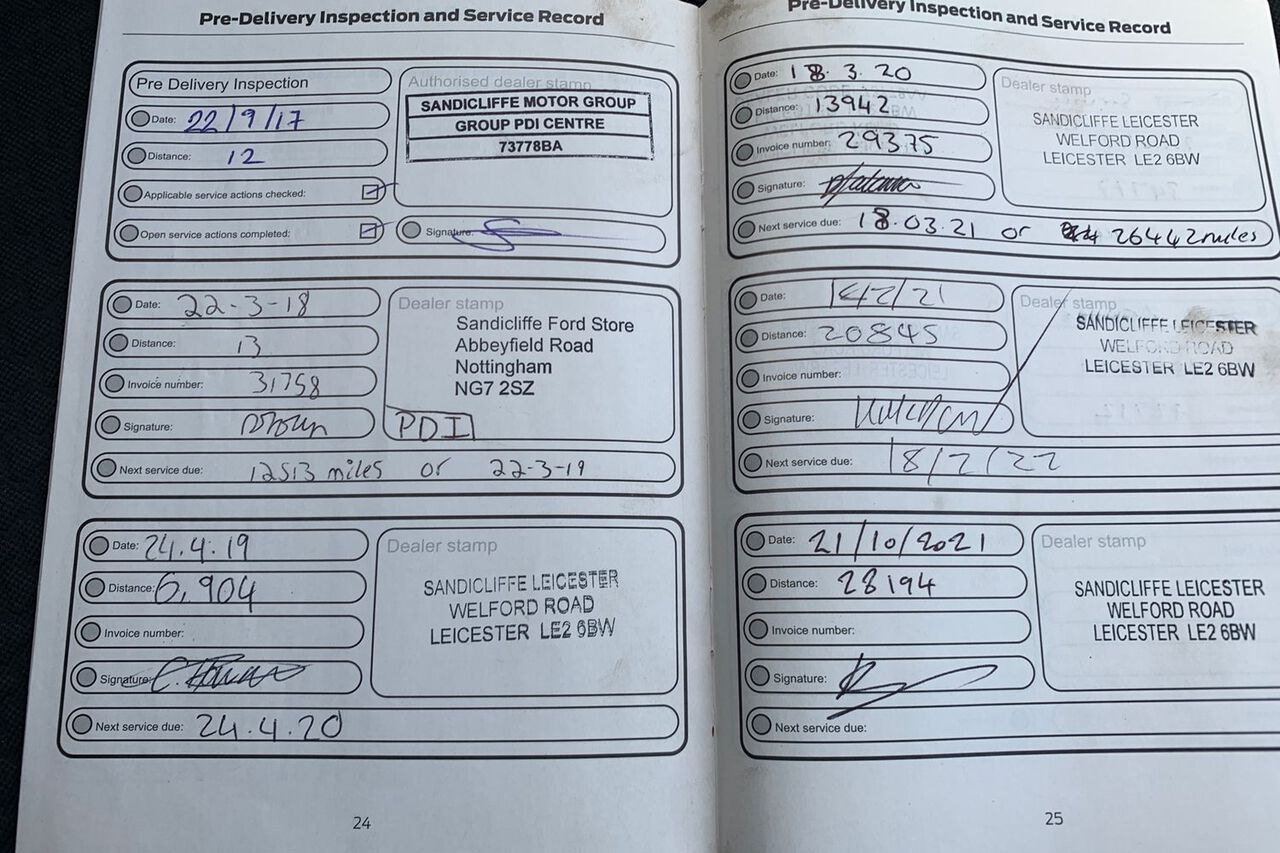 Pre-Delivery Inspection and Service Record
Pre Delivery Inspection
Date: 22/9/17
Distance: 12
Applicable service actions checked:
Open service actions completed:
Authorised dealer stamp
SANDICLIFFE MOTOR GROUP
GROUP PDI CENTRE
73778BA
Signature:
Date: 22-3-18
Distance: 13
Invoice number: 31758
Signature:
Dealer stamp
Sandicliffe Ford Store
Abbeyfield Road
Nottingham
NG7 2SZ
PDI
Next service due: 12513 miles or 22-3-19
Date: 24.4.19
Distance: 6,904
Invoice number:
Signature:
Dealer stamp
SANDICLIFFE LEICESTER
WELFORD ROAD
LEICESTER LE2 6BW
Next service due: 24.4.20
24
Pre-Delivery Inspection and Service Record
Date: 18.3.20
Distance: 13942
Invoice number: 29375
Signature:
Dealer stamp
SANDICLIFFE LEICESTER
WELFORD ROAD
LEICESTER LE2 6BW
Next service due: 18.03.21 or 26442miles
Date:
Distance: 20845
Invoice number:
Signature:
Dealer stamp
SANDICLIFFE LEICESTER
WELFORD ROAD
LEICESTER LE2 6BW
Next service due: 18/2/22
Date: 21/10/2021
Distance: 28194
Invoice number:
Signature:
Dealer stamp
SANDICLIFFE LEICESTER
WELFORD ROAD
LEICESTER LE2 6BW
Next service due:
25